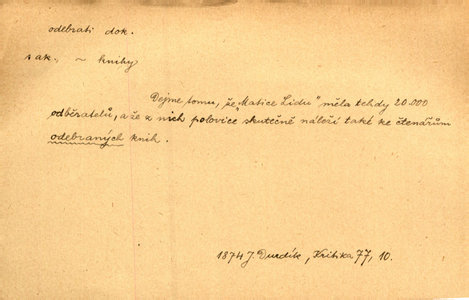 odebrati dok.
s ak., ~ knihy
Dejme tomu, že „Matice Lidu" měla tehdy 20.000
odběratelů, a že z nich polovice skutečně náleží také ke čtenářům
odebraných knih.
1874 J. Durdík, Kritika 77, 10.